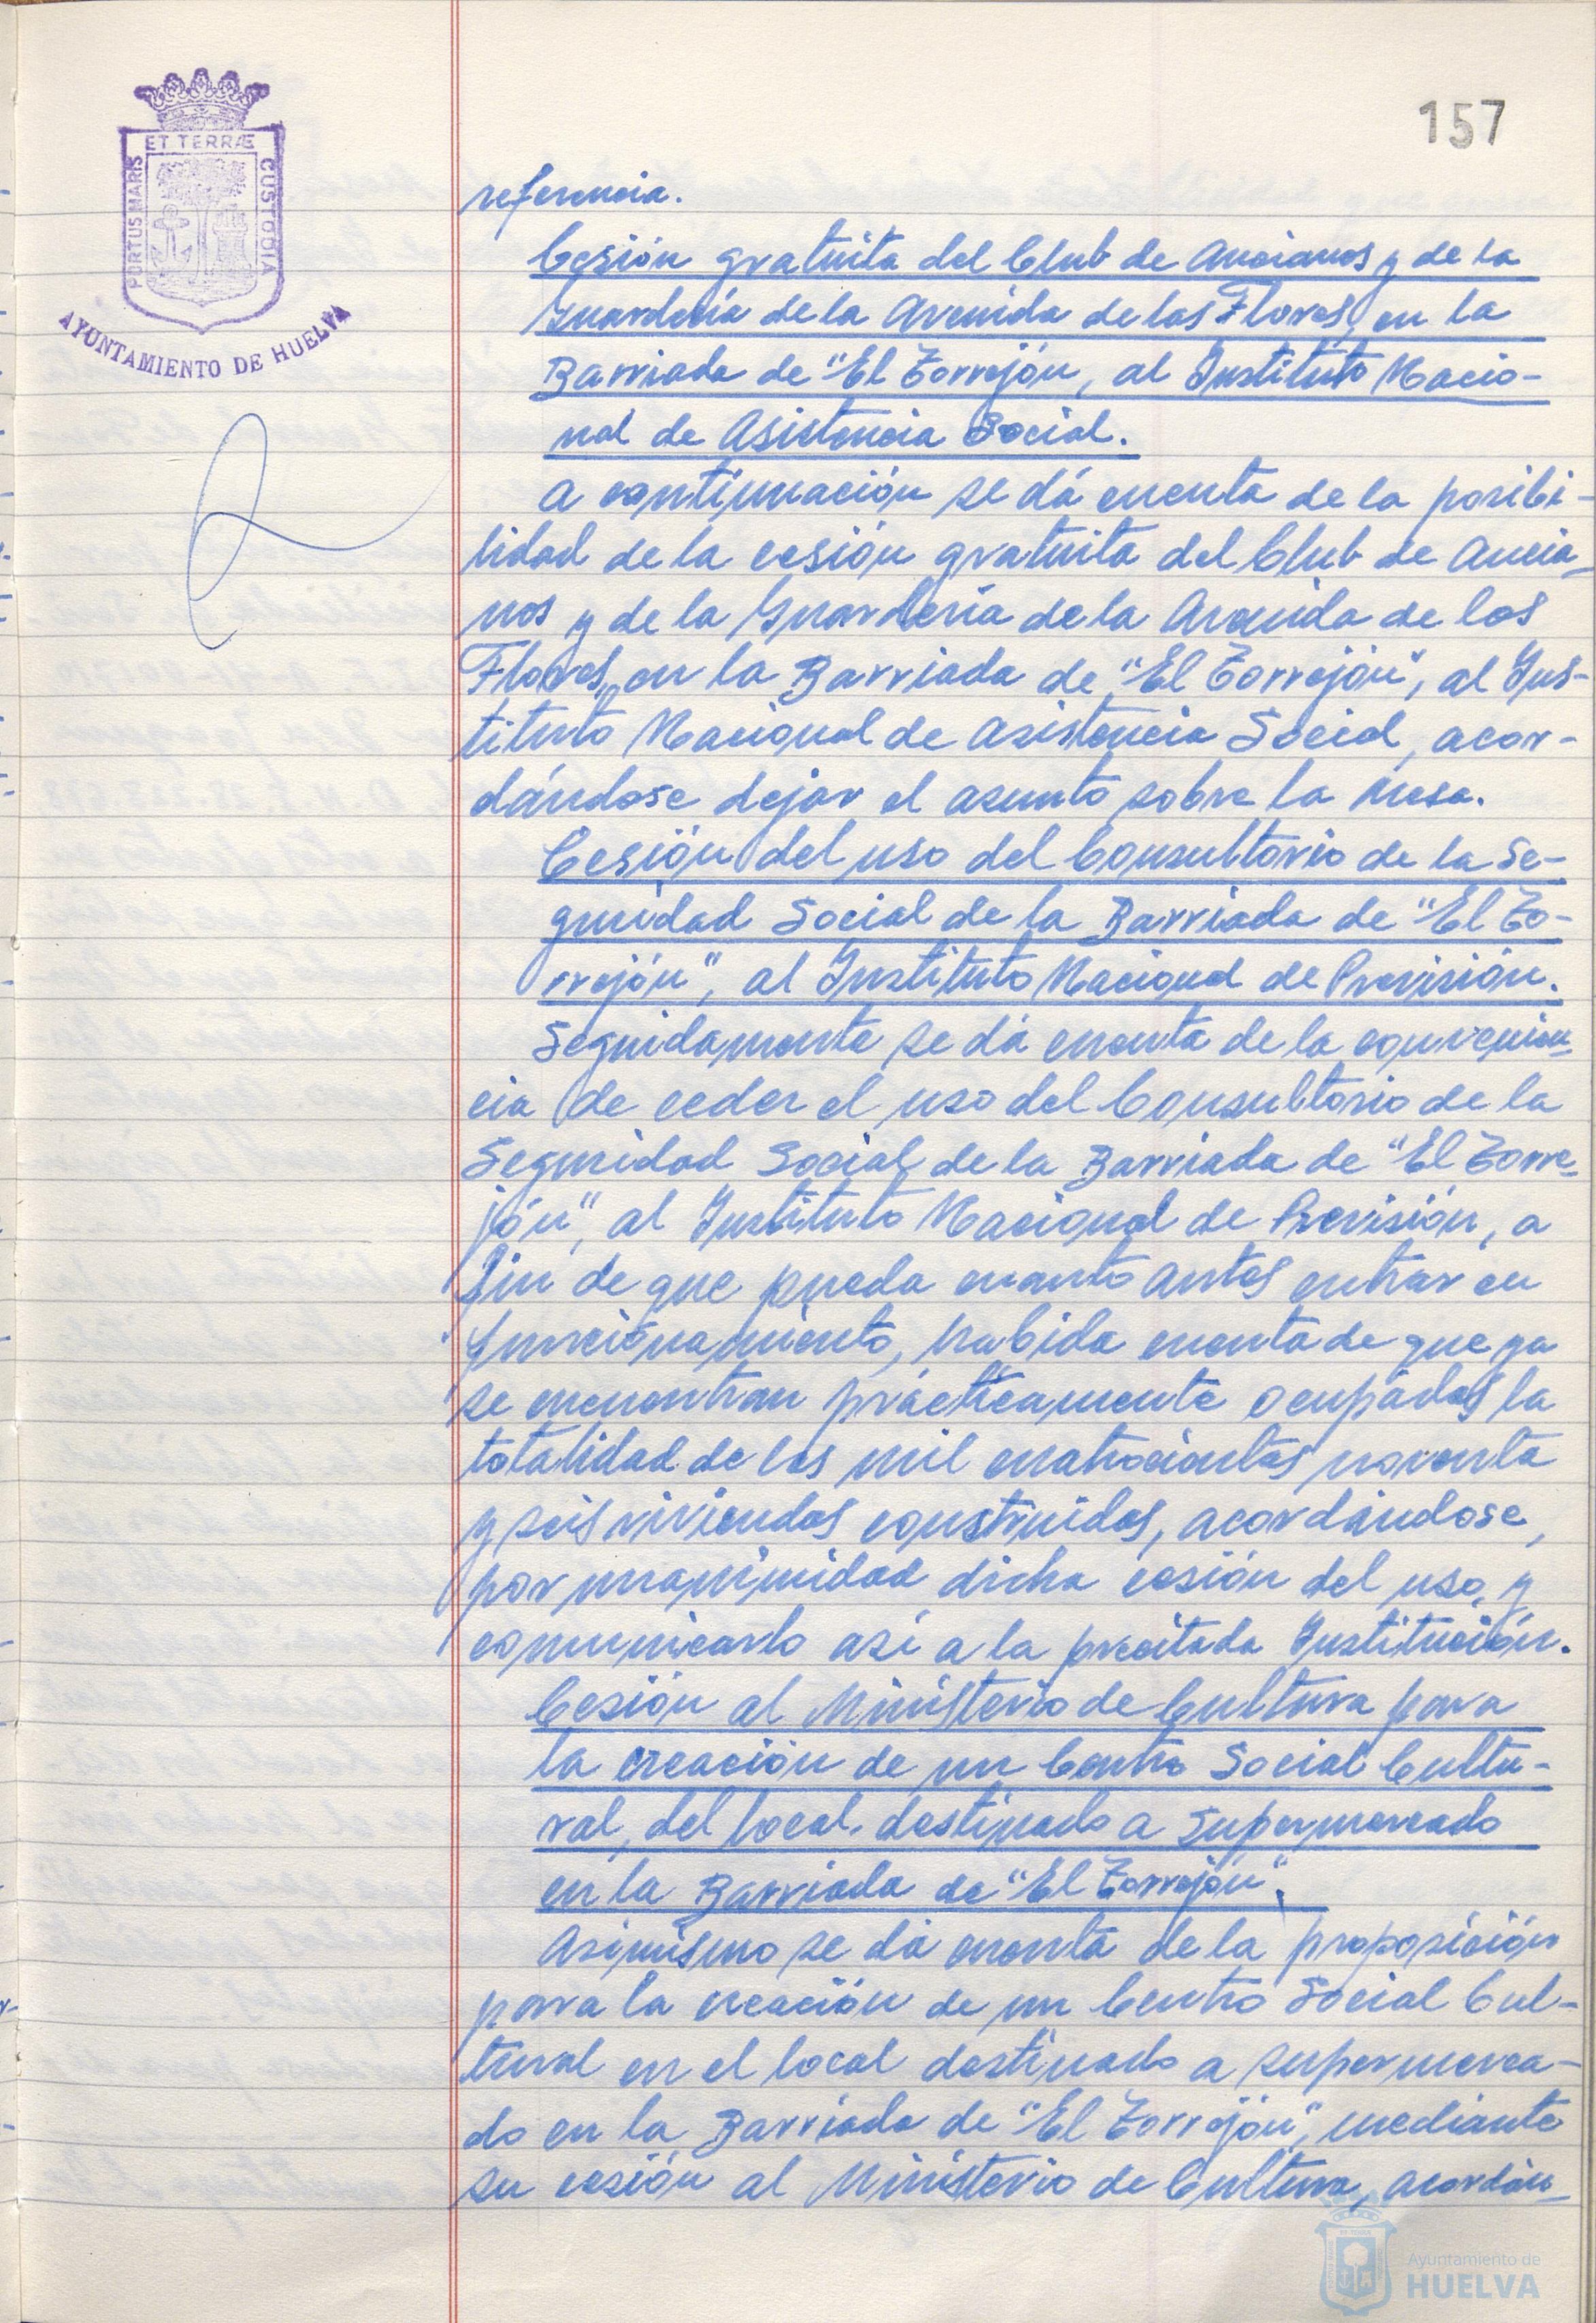 157
ET TERRÆ
PORTUS MARIS
CUSTODIA
AYUNTAMIENTO DE HUELVA
referencia.
Cesión gratuita del Club de Ancianos y de la
Guardería de la Avenida de las Flores, en la
Barriada de "El Torrejón, al Instituto Nacio-
nal de Asistencia Social.
A continuación se dá cuenta de la posibi-
lidad de la cesión gratuita del Club de Ancia-
nos y de la Guardería de la Avenida de las
Flores, en la Barriada de "El Torrejón", al Ins-
tituto Nacional de Asistencia Social, acor-
dándose dejar el asunto sobre la mesa.
Cesión del uso del Consultorio de la Se-
guridad Social de la Barriada de "El To-
rrejón", al Instituto Nacional de Previsión.
Seguidamente se dá cuenta de la convenien-
cia de ceder el uso del Consultorio de la
Seguridad Social de la Barriada de "El Torre-
jón", al Instituto Nacional de Previsión, a
fin de que pueda cuanto antes entrar en
funcionamiento, habida cuenta de que ya
se encuentran prácticamente ocupadas la
totalidad de las mil cuatrocientas noventa
y seis viviendas construidas, acordándose,
por unanimidad dicha cesión del uso, y
comunicarlo así a la precitada Institución.
Cesión al Ministerio de Cultura para
la creación de un Centro Social Cultu-
ral, del local destinado a Supermercado
en la Barriada de "El Torrejón".
Asimismo se dá cuenta de la proposición
para la creación de un Centro Social Cul-
tural en el local destinado a supermerca-
do en la Barriada de "El Torrejón", mediante
su cesión al Ministerio de Cultura, acordán-
Ayuntamiento de
HUELVA